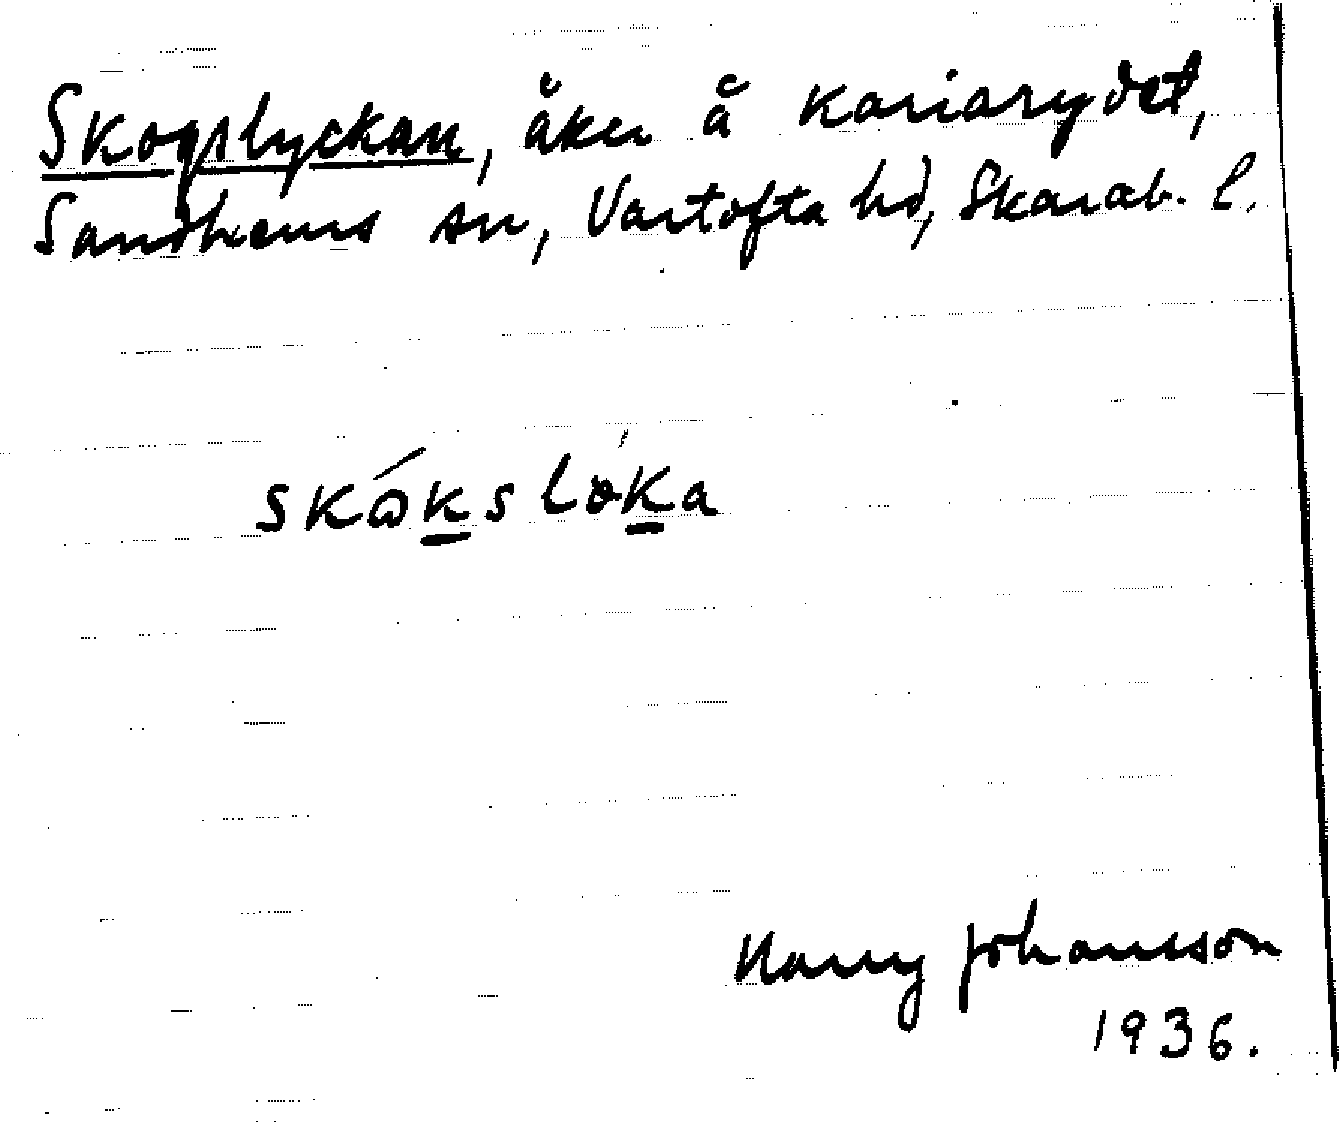 Skogslyckan, åker å Kariarydet,
Sandhems sn, Vartofta hd, Skarab. l.
skɷ́ksloka
Harry Johansson
1936.